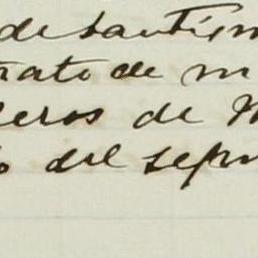 de Santísi
trato de m
leros de M
o del sepu